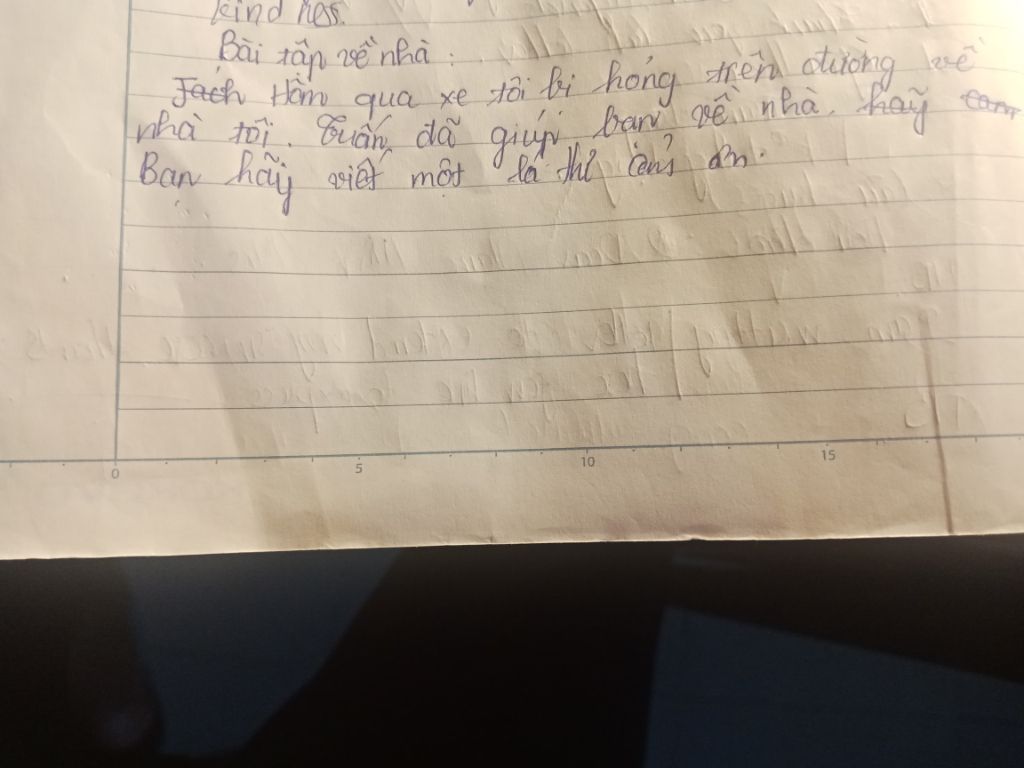 kindness.
Bài tập về nhà :
Jach Hôm qua xe tôi bị hỏng trên đường về
nhà tôi. Tuấn đã giúp bạn về nhà. hãy
Bạn hãy viết một lá thư cảm ơn.
0 5 10 15